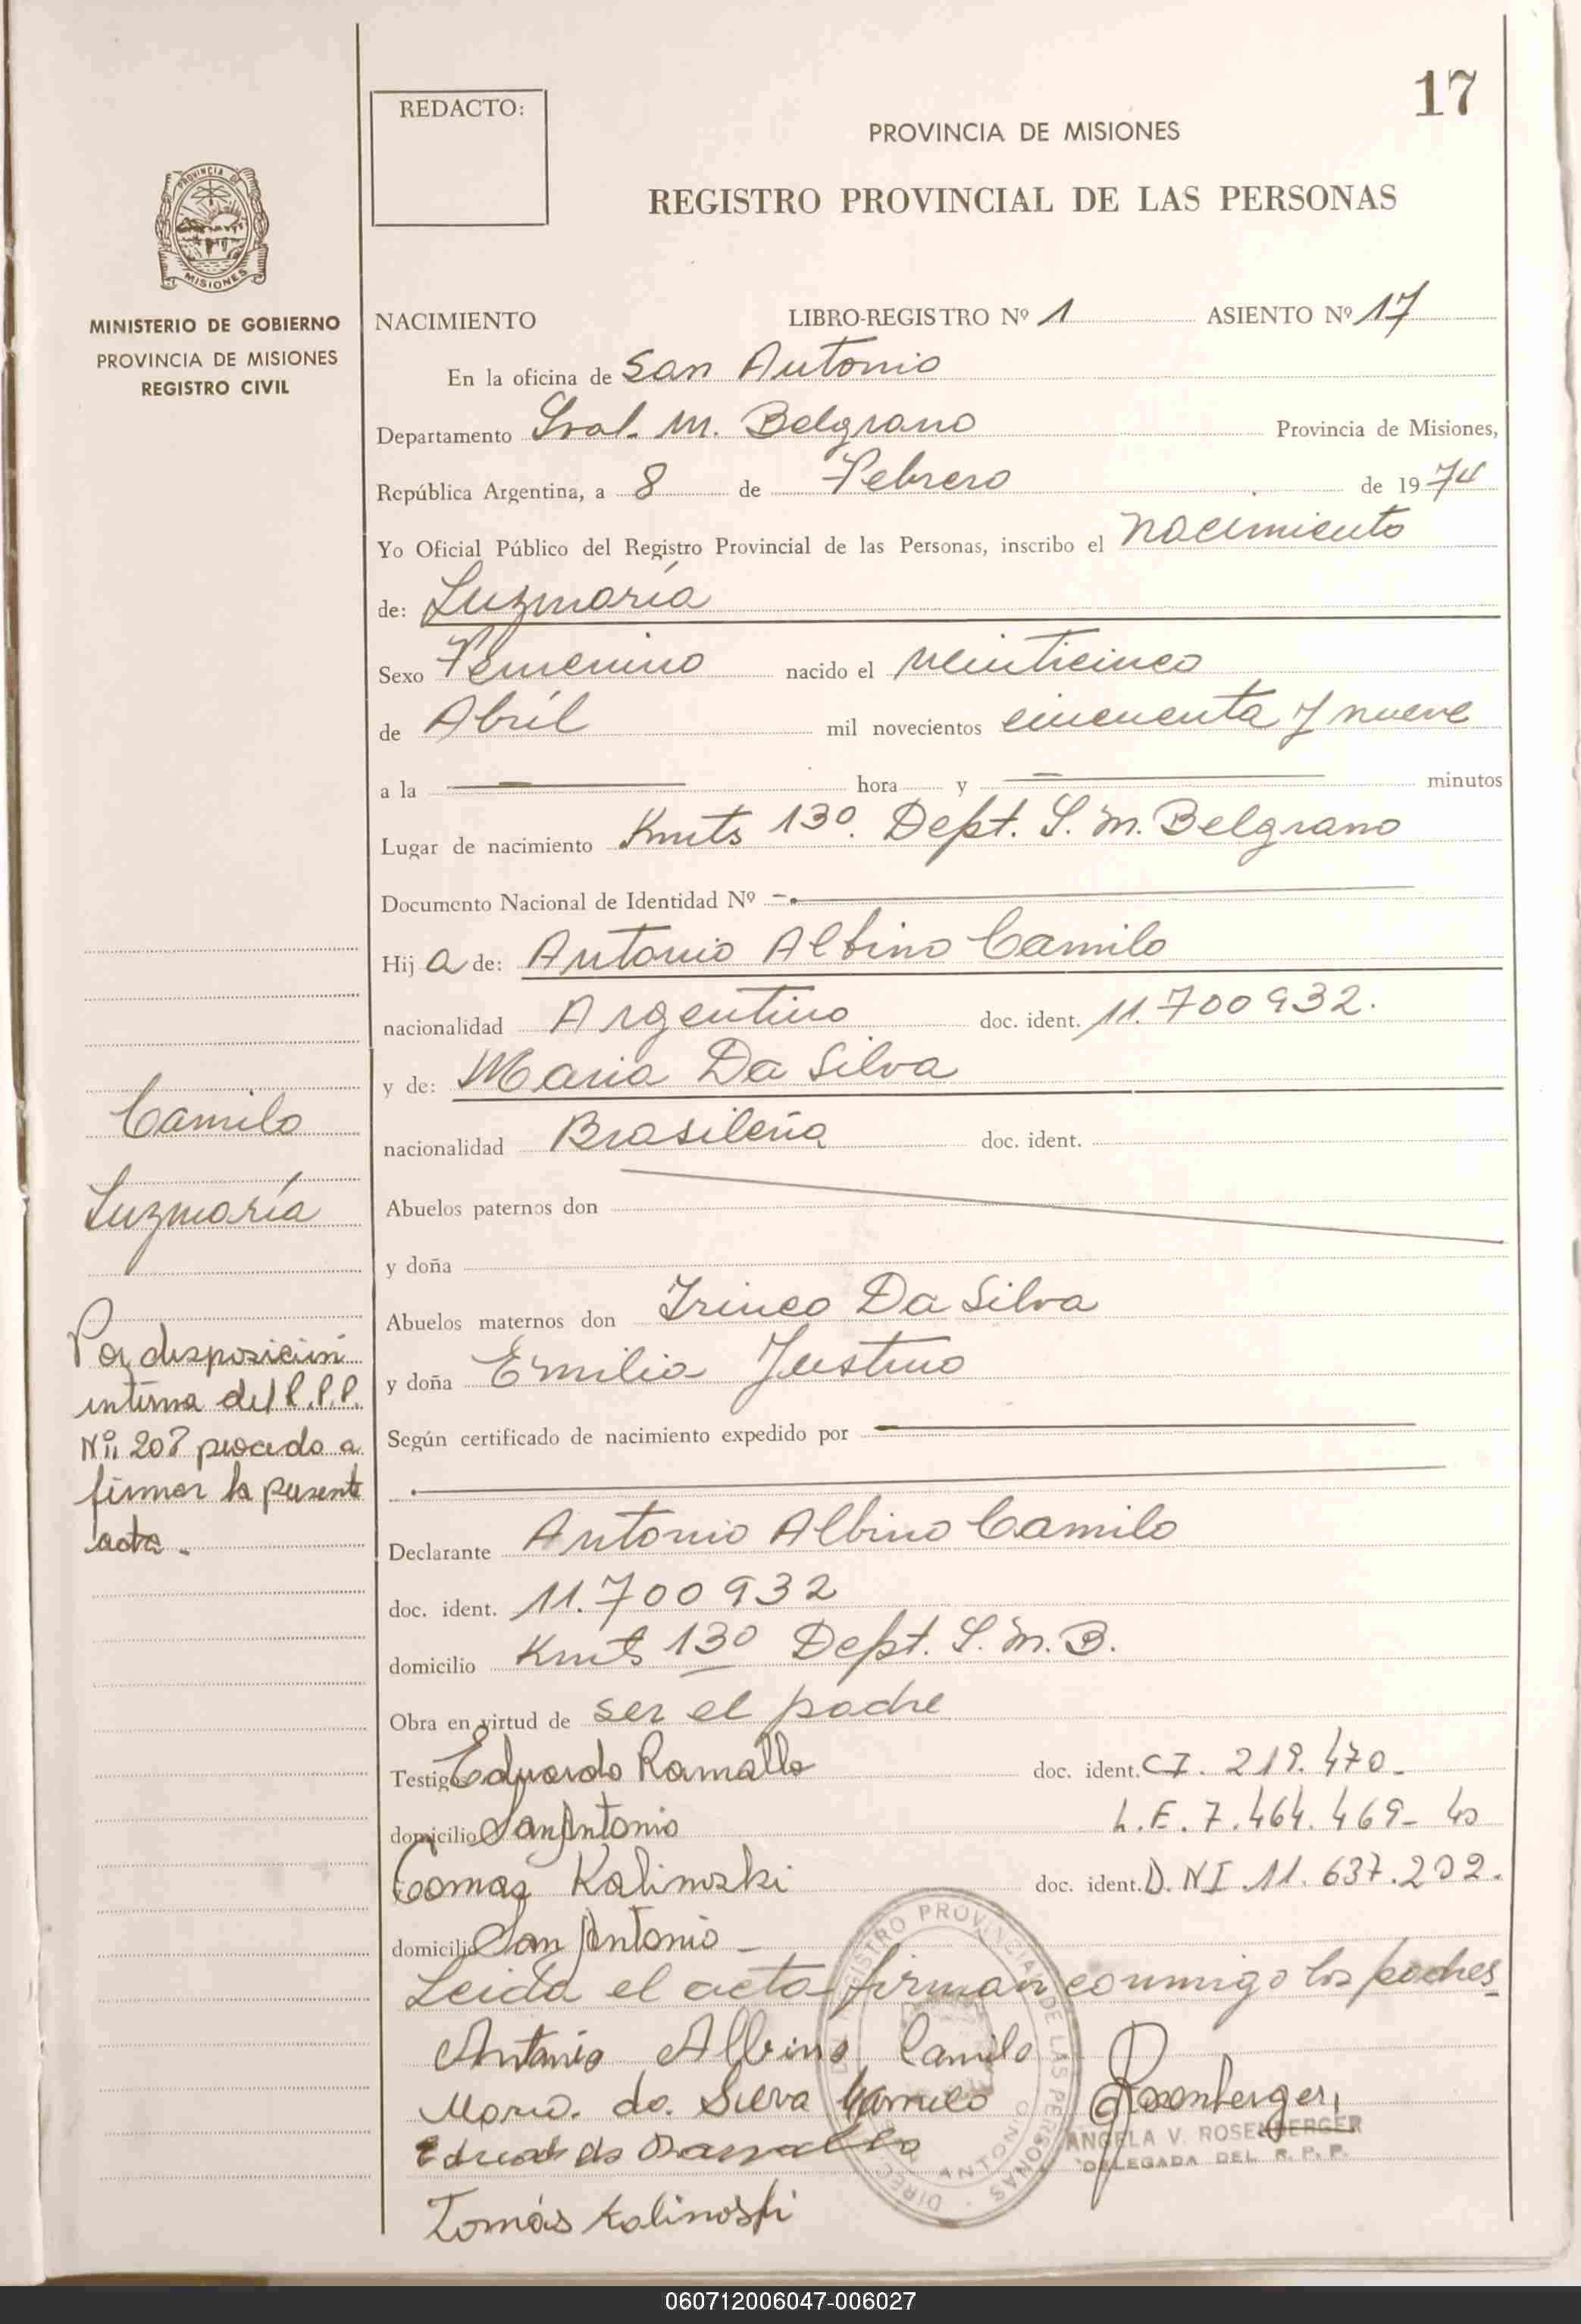 17
REDACTO:
PROVINCIA DE MISIONES
REGISTRO PROVINCIAL DE LAS PERSONAS
PROVINCIA DE
MISIONES
MINISTERIO DE GOBIERNO
PROVINCIA DE MISIONES
REGISTRO CIVIL
NACIMIENTO LIBRO-REGISTRO Nº 1 ASIENTO Nº 17
En la oficina de San Antonio
Departamento Gral. M. Belgrano Provincia de Misiones,
República Argentina, a 8 de Febrero de 1974
Yo Oficial Público del Registro Provincial de las Personas, inscribo el nacimiento
de: Luzmaría
Sexo Femenino nacido el veinticinco
de Abril mil novecientos cincuenta y nueve
a la hora y minutos
Lugar de nacimiento Kmts 130. Dept. G. M. Belgrano
Documento Nacional de Identidad Nº
Hij a de: Antonio Albino Camilo
nacionalidad Argentino doc. ident. 11.700932.
y de: Maria Da Silva
nacionalidad Brasileña doc. ident.
Abuelos paternos don
y doña
Abuelos maternos don Irineo Da Silva
y doña Emilia Justino
Según certificado de nacimiento expedido por
Declarante Antonio Albino Camilo
doc. ident. 11.700932
domicilio Kmts 130 Dept. G. M. B.
Obra en virtud de ser el padre
Testigos Eduardo Ramallo doc. ident. CI. 219.470-
domicilio San Antonio L.E. 7.464.469-
Tomas Kalinoski doc. ident. D.NI 11.637.202.
domicilio San Antonio
Leida el acta firman conmigo los padres
Antonio Albino Camilo
Maria da Silva Camilo
Ramallo
Tomás Kalinoski
Rosenberger
ANGELA V. ROSENBERGER
DELEGADA DEL R. P. P.
Camilo
Luzmaría
Por disposición
interna del R.P.P.
Nº 208 procedo a
firmar la presente
acta.
060712006047-006027